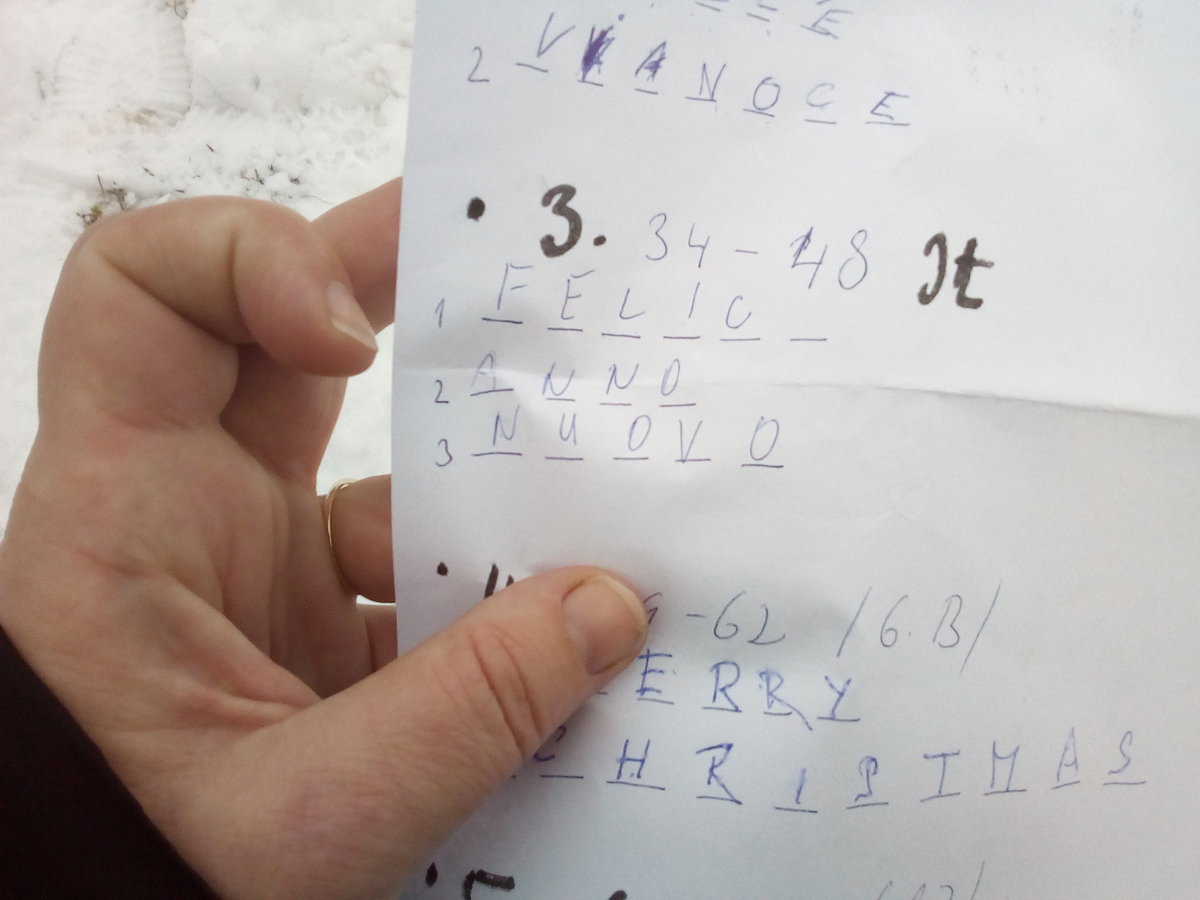 E
2 VIANOCE
• 3. 34 - 48 It
1 FELIC_
2 ANNO
3 NUOVO
-62 /G.B/
ERRY
CHRISTMAS